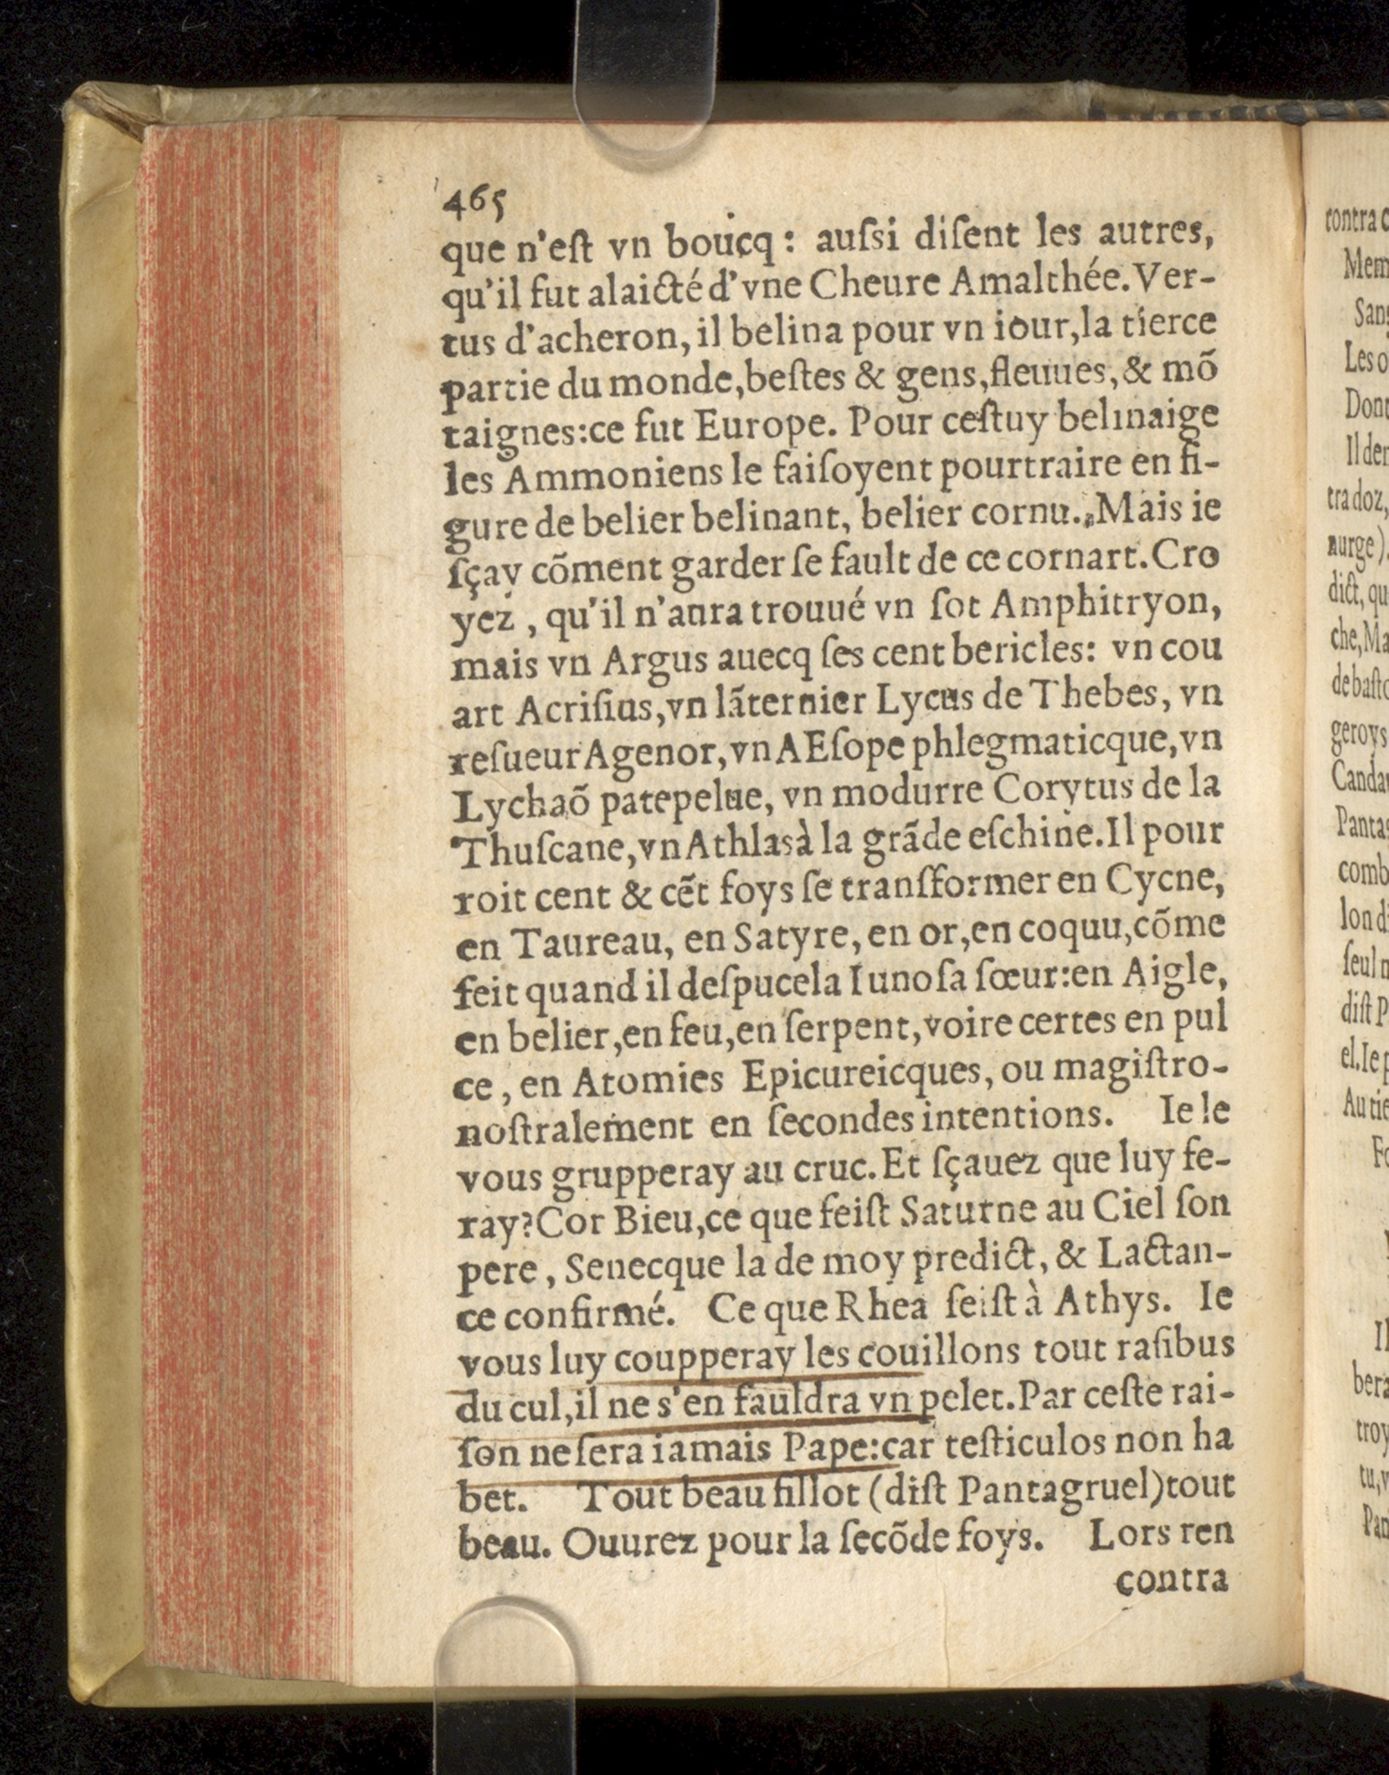 465
que n'eſt vn boucq : auſsi diſent les autres,
qu'il fut alaicté d'vne Cheure Amalthée. Ver-
tus d'acheron, il belina pour vn iour, la tierce
partie du monde, beſtes & gens, fleuues, & mõ
taignes: ce fut Europe. Pour ceſtuy belinaige
les Ammoniens le faiſoyent pourtraire en fi-
gure de belier belinant, belier cornu. Mais ie
ſçay cõment garder ſe fault de ce cornart. Cro
yez , qu'il n'aura trouué vn ſot Amphitryon,
mais vn Argus auecq ſes cent bericles: vn cou
art Acriſius, vn lãternier Lycus de Thebes, vn
reſueur Agenor, vn AEſope phlegmaticque, vn
Lychaõ patepelue, vn modurre Corytus de la
Thuſcane, vn Athlas à la grãde eſchine. Il pour
roit cent & cẽt foys ſe tranſformer en Cycne,
en Taureau, en Satyre, en or, en coquu, cõme
feit quand il deſpucela Iuno ſa ſœur: en Aigle,
en belier, en feu, en ſerpent, voire certes en pul
ce , en Atomies Epicureicques, ou magiſtro-
noſtralement en ſecondes intentions. Ie le
vous grupperay au cruc. Et ſçauez que luy fe-
ray? Cor Bieu, ce que feiſt Saturne au Ciel ſon
pere , Senecque la de moy predict, & Lactan-
ce confirmé. Ce que Rhea feiſt à Athys. Ie
vous luy coupperay les couillons tout raſibus
du cul, il ne s'en fauldra vn pelet. Par ceſte rai-
ſon ne ſera iamais Pape: car teſticulos non ha
bet. Tout beau fillot (diſt Pantagruel) tout
beau. Ouurez pour la ſecõde foys. Lors ren
contra
contra
Mem
Les o
Il der
tra doz,
nurge)
dict, qu
che, Ma
de baſto
geroys
Canda
Panta
comb
lon d'
ſeul
diſt P
el. Ie p
Au tie
Il
bera
troy
tu, v
Pan